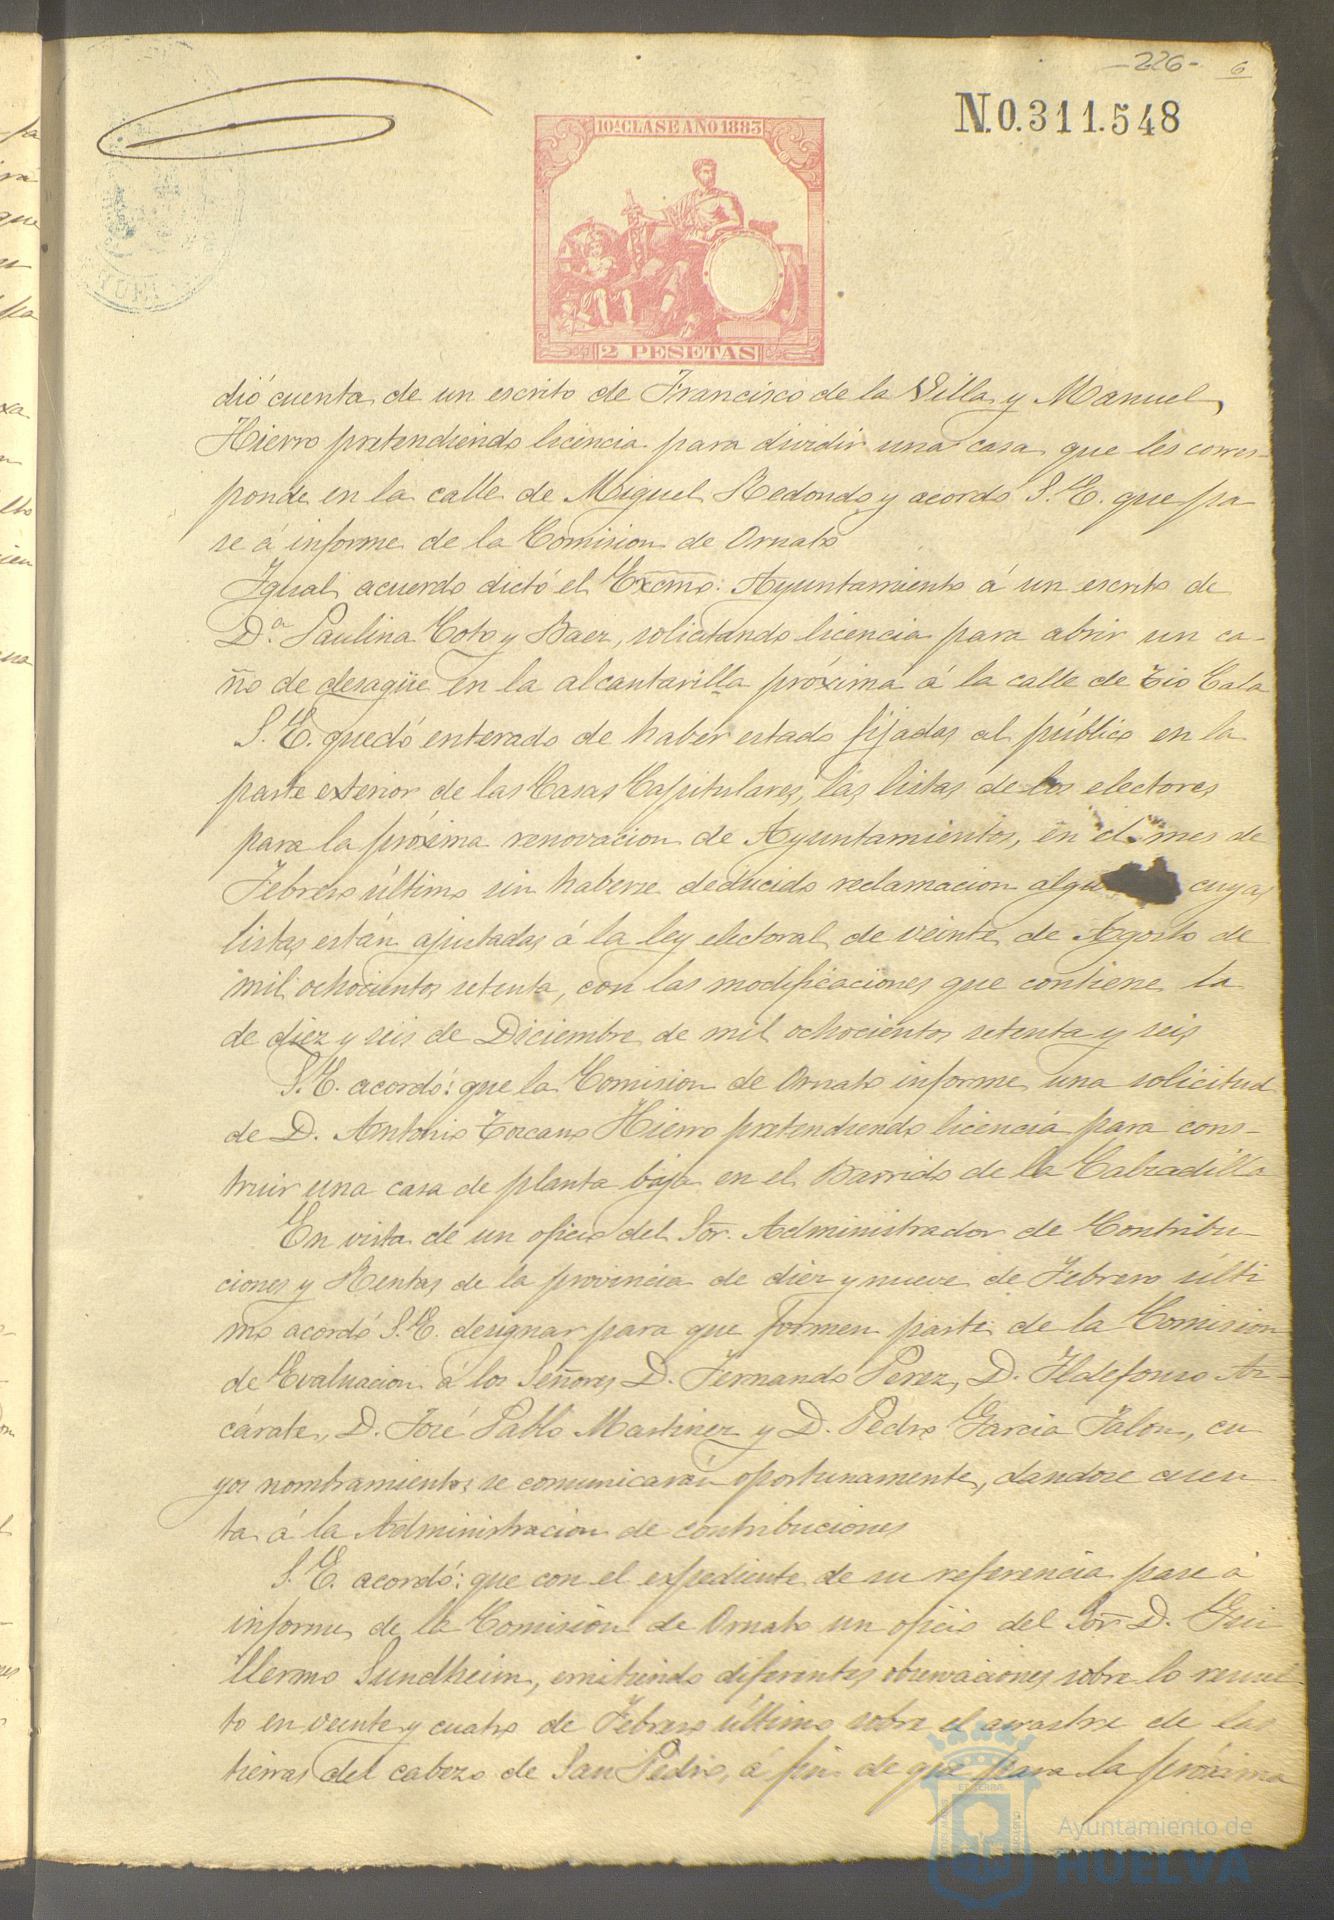 -226- 6
N.0.311.548
10ª CLASE AÑO 1883
2 PESETAS
dió cuenta de un escrito de Francisco de la Villa y Manuel
Hierro pretendiendo licencia para dividir una casa que les corres-
ponde en la calle de Miguel Redondo y acordó S.E. que pa
se á informe de la Comision de Ornato
Igual acuerdo dictó el Excmo: Ayuntamiento á un escrito de
D.ª Paulina Coto y Baez, solicitando licencia para abrir un ca-
ño de desagüe en la alcantarilla próxima á la calle de Tio Cala
S.E. quedó enterado de haber estado fijadas al público en la
parte exterior de las Casas Capitulares, las listas de los electores
para la próxima renovacion de Ayuntamientos, en el mes de
Febrero último sin haberse deducido reclamacion algu cuyas
listas están ajustadas á la ley electoral de veinte de Agosto de
mil ochocientos setenta, con las modificaciones que contiene la
de diez y seis de Diciembre de mil ochocientos setenta y seis
S.E. acordó: que la Comision de Ornato informe una solicitud
de D. Antonio Toscano Hierro pretendiendo licencia para cons-
truir una casa de planta baja en el Barrido de la Calzadilla
En vista de un oficio del Sor. Administrador de Contribu-
ciones y Rentas de la provincia de diez y nueve de Febrero últi
mo acordó S.E. designar para que formen parte de la Comision
de Evaluacion á los Señores D. Fernando Perez, D. Ildefonso Az-
cárate, D. José Pablo Martinez y D. Pedro Garcia Jalon, cu
yos nombramientos se comunicarán oportunamente, dandose cuen-
ta á la Administracion de contribuciones
S.E. acordó: que con el expediente de su referencia pase á
informe de la Comisión de Ornato un oficio del Sor D. Gui
llermo Sundheim, emitiendo diferentes observaciones sobre lo resuel-
to en veinte y cuatro de Febrero último sobre el arrastre de las
tierras del cabezo de San Pedro, á fin de que para la próxima
Ayuntamiento de
HUELVA